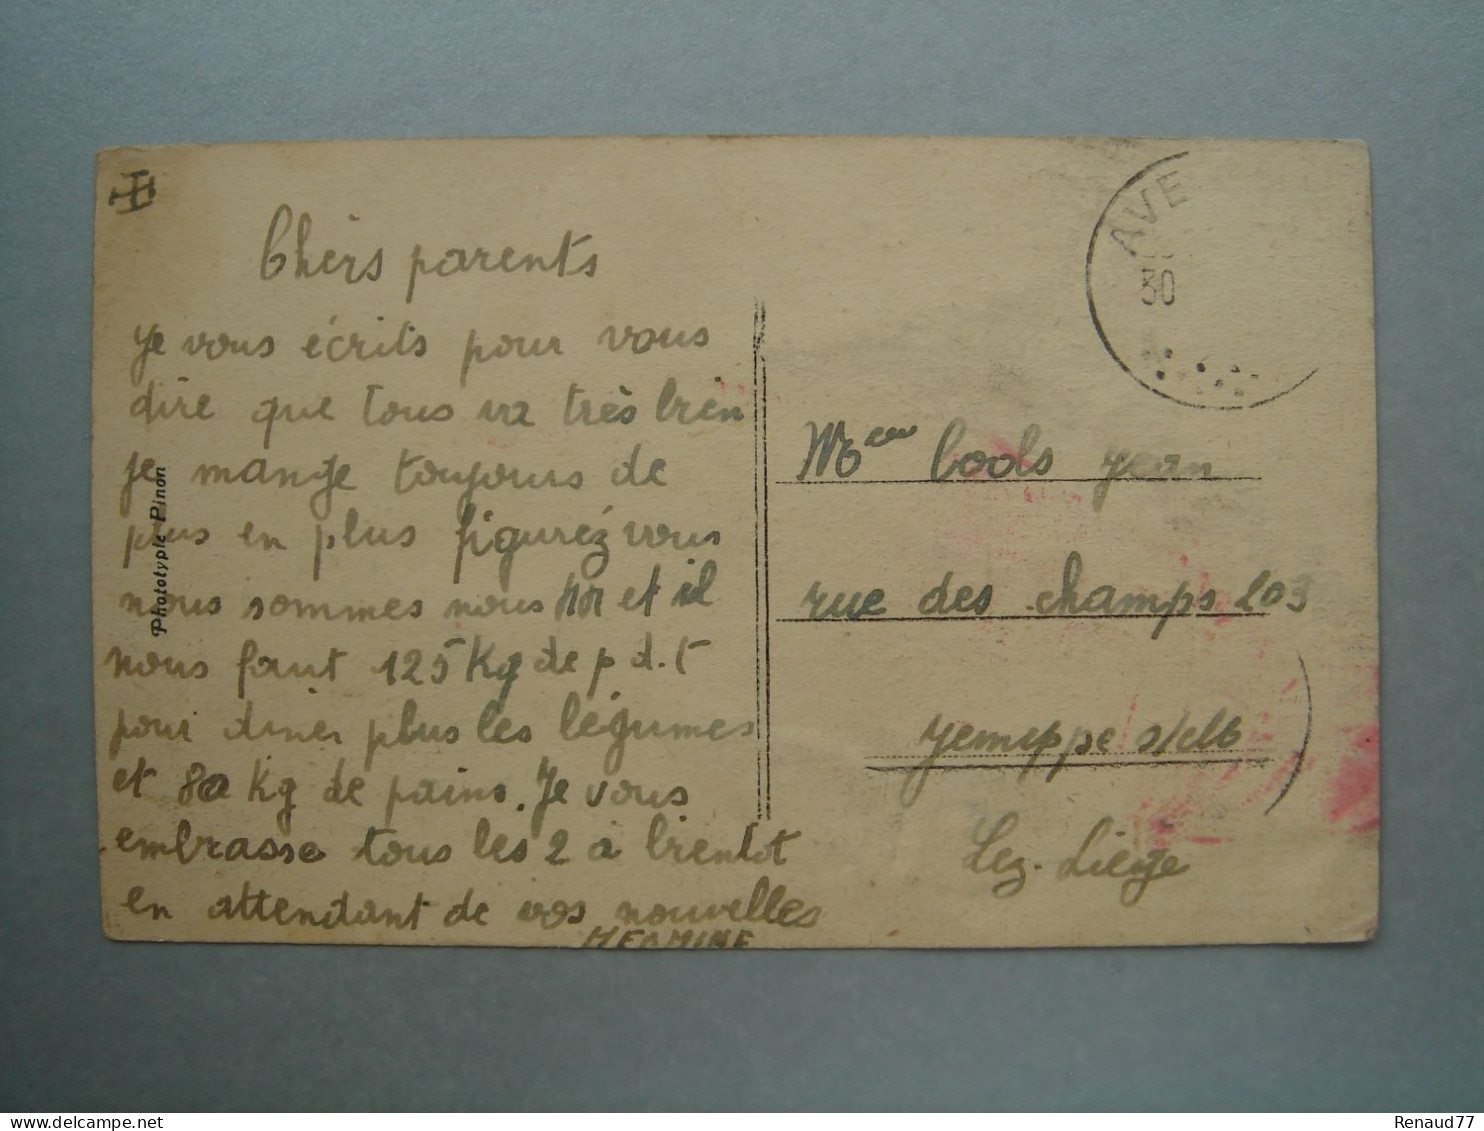 Chèrs parents
je vous écrits pour vous
dire que tous va très bien
je mange toujours de
plus en plus figuréz vous
nous sommes nous et il
nous faut 125 Kg de p d.t
pour diner plus les légumes
et 80 Kg de pains. Je vous
embrasse tous les 2 à bientot
en attendant de vos nouvelles
HERMINE
Phototypie Pinon
AVE
30
cools jean
rue des champs 203
jemeppe s/
Lez-Liège
Renaud77